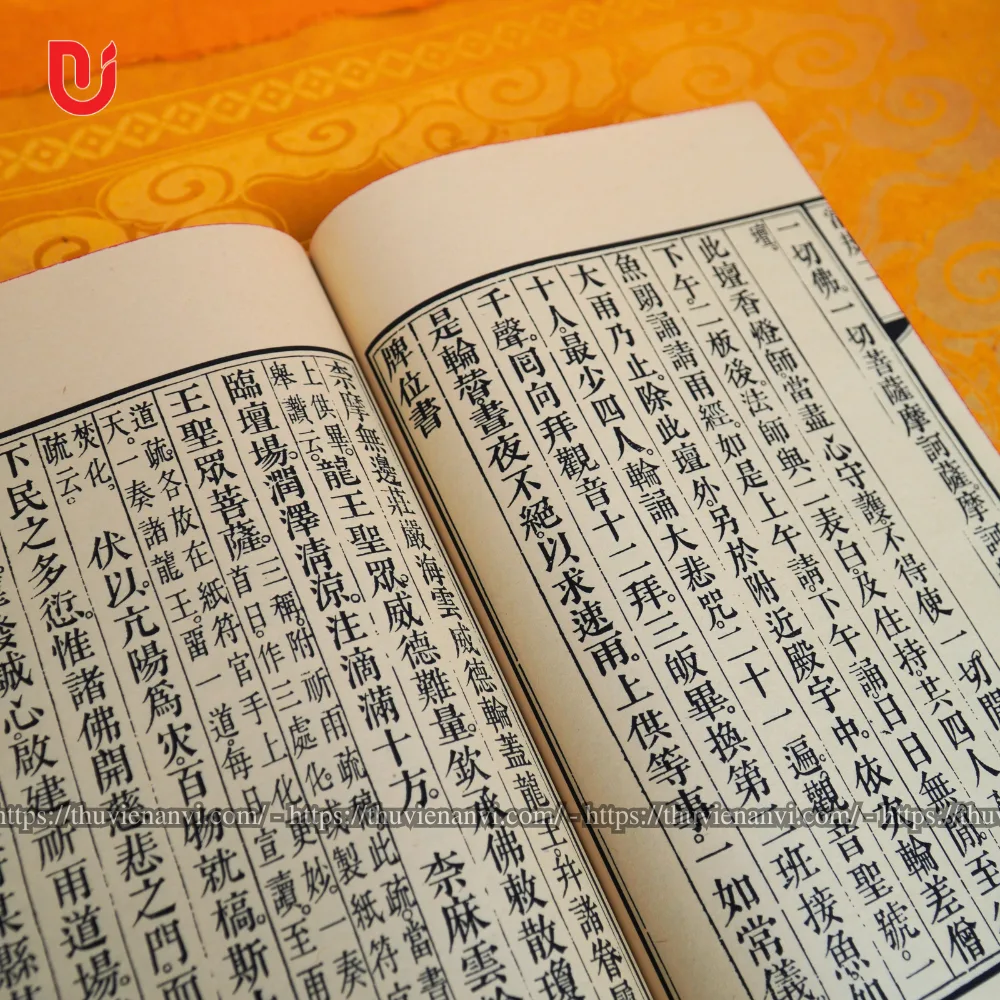 一切佛。一切菩薩摩訶薩。摩訶
壇。
此壇香燈師。當盡心守護不得使一切閒人
下午。二板後。法師與二表白。及住持。共四人。
魚朗誦請雨經。如是上午請。下午誦日日無間。至
大雨乃止。除此壇外。另於附近殿宇中。依次輪差僧
十人。最少四人。輪誦大悲咒。二十一遍。觀音聖號。一
千聲。囘向拜觀音十二拜。三皈畢。換第二班接魚。如
是輪替晝夜不絕。以求速雨。上供等事。一如常儀
牌位書
柰摩無邊莊嚴海雲威德輪蓋龍王。幷諸眷屬
上供畢。
舉讚云。
龍王聖眾。威德難量。欽承佛敕散瓊
臨壇場。潤澤清涼。注滴滿十方。 柰麻雲
王聖眾菩薩。
三稱。附祈雨疏 此疏。當書
首日。作三處化。或製紙符官
道疏。各放在紙符官手上化更妙。一奏
天。一奏諸龍王。畱一道。每日宣讀。至雨
焚化。
疏云。
伏以。亢陽為災。百物就槁。斯
下民之多愆。惟諸佛開慈悲之門。而
誠心。啟建祈雨道場。
某縣
https://thuvienanvi.com/ - https://thuvienanvi.com/ - https://thuvienanvi.com/